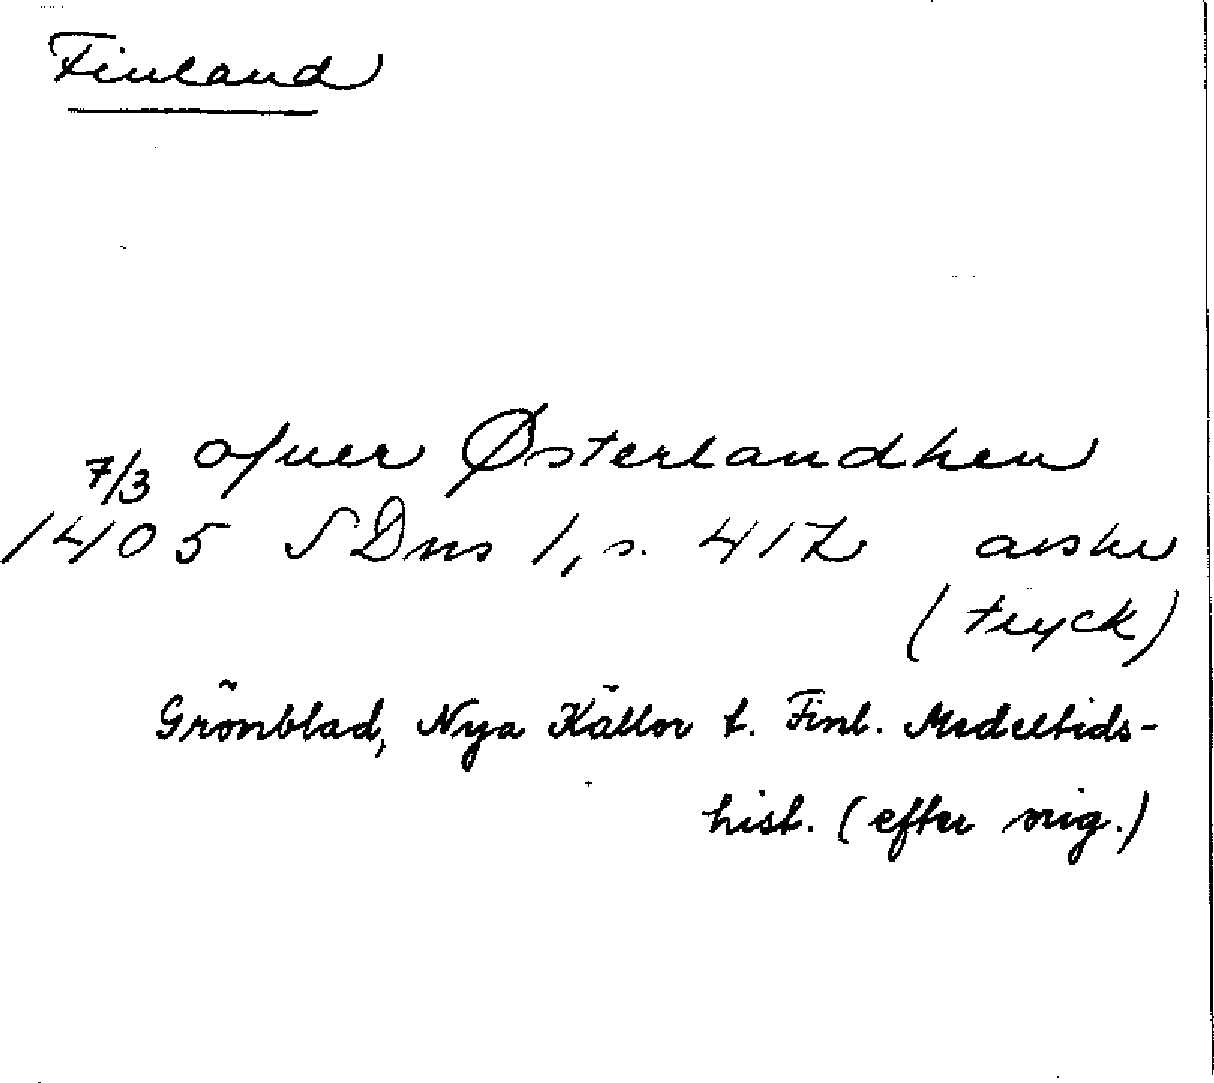 Finland
ofuer Østerlandhen
7/3
1405 SDns 1, s. 417 avskr
(tryck)
Grönblad, Nya Källor t. Finl. Medeltids-
hist. (efter orig.)